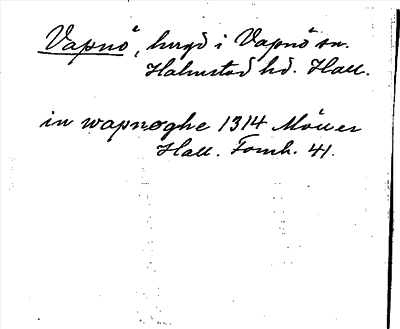 Vapnö, huvd i Vapnö sn.
Halmstad hd. Hall.
in wapnøghe 1314 Möller
Hall. Fornh. 41.